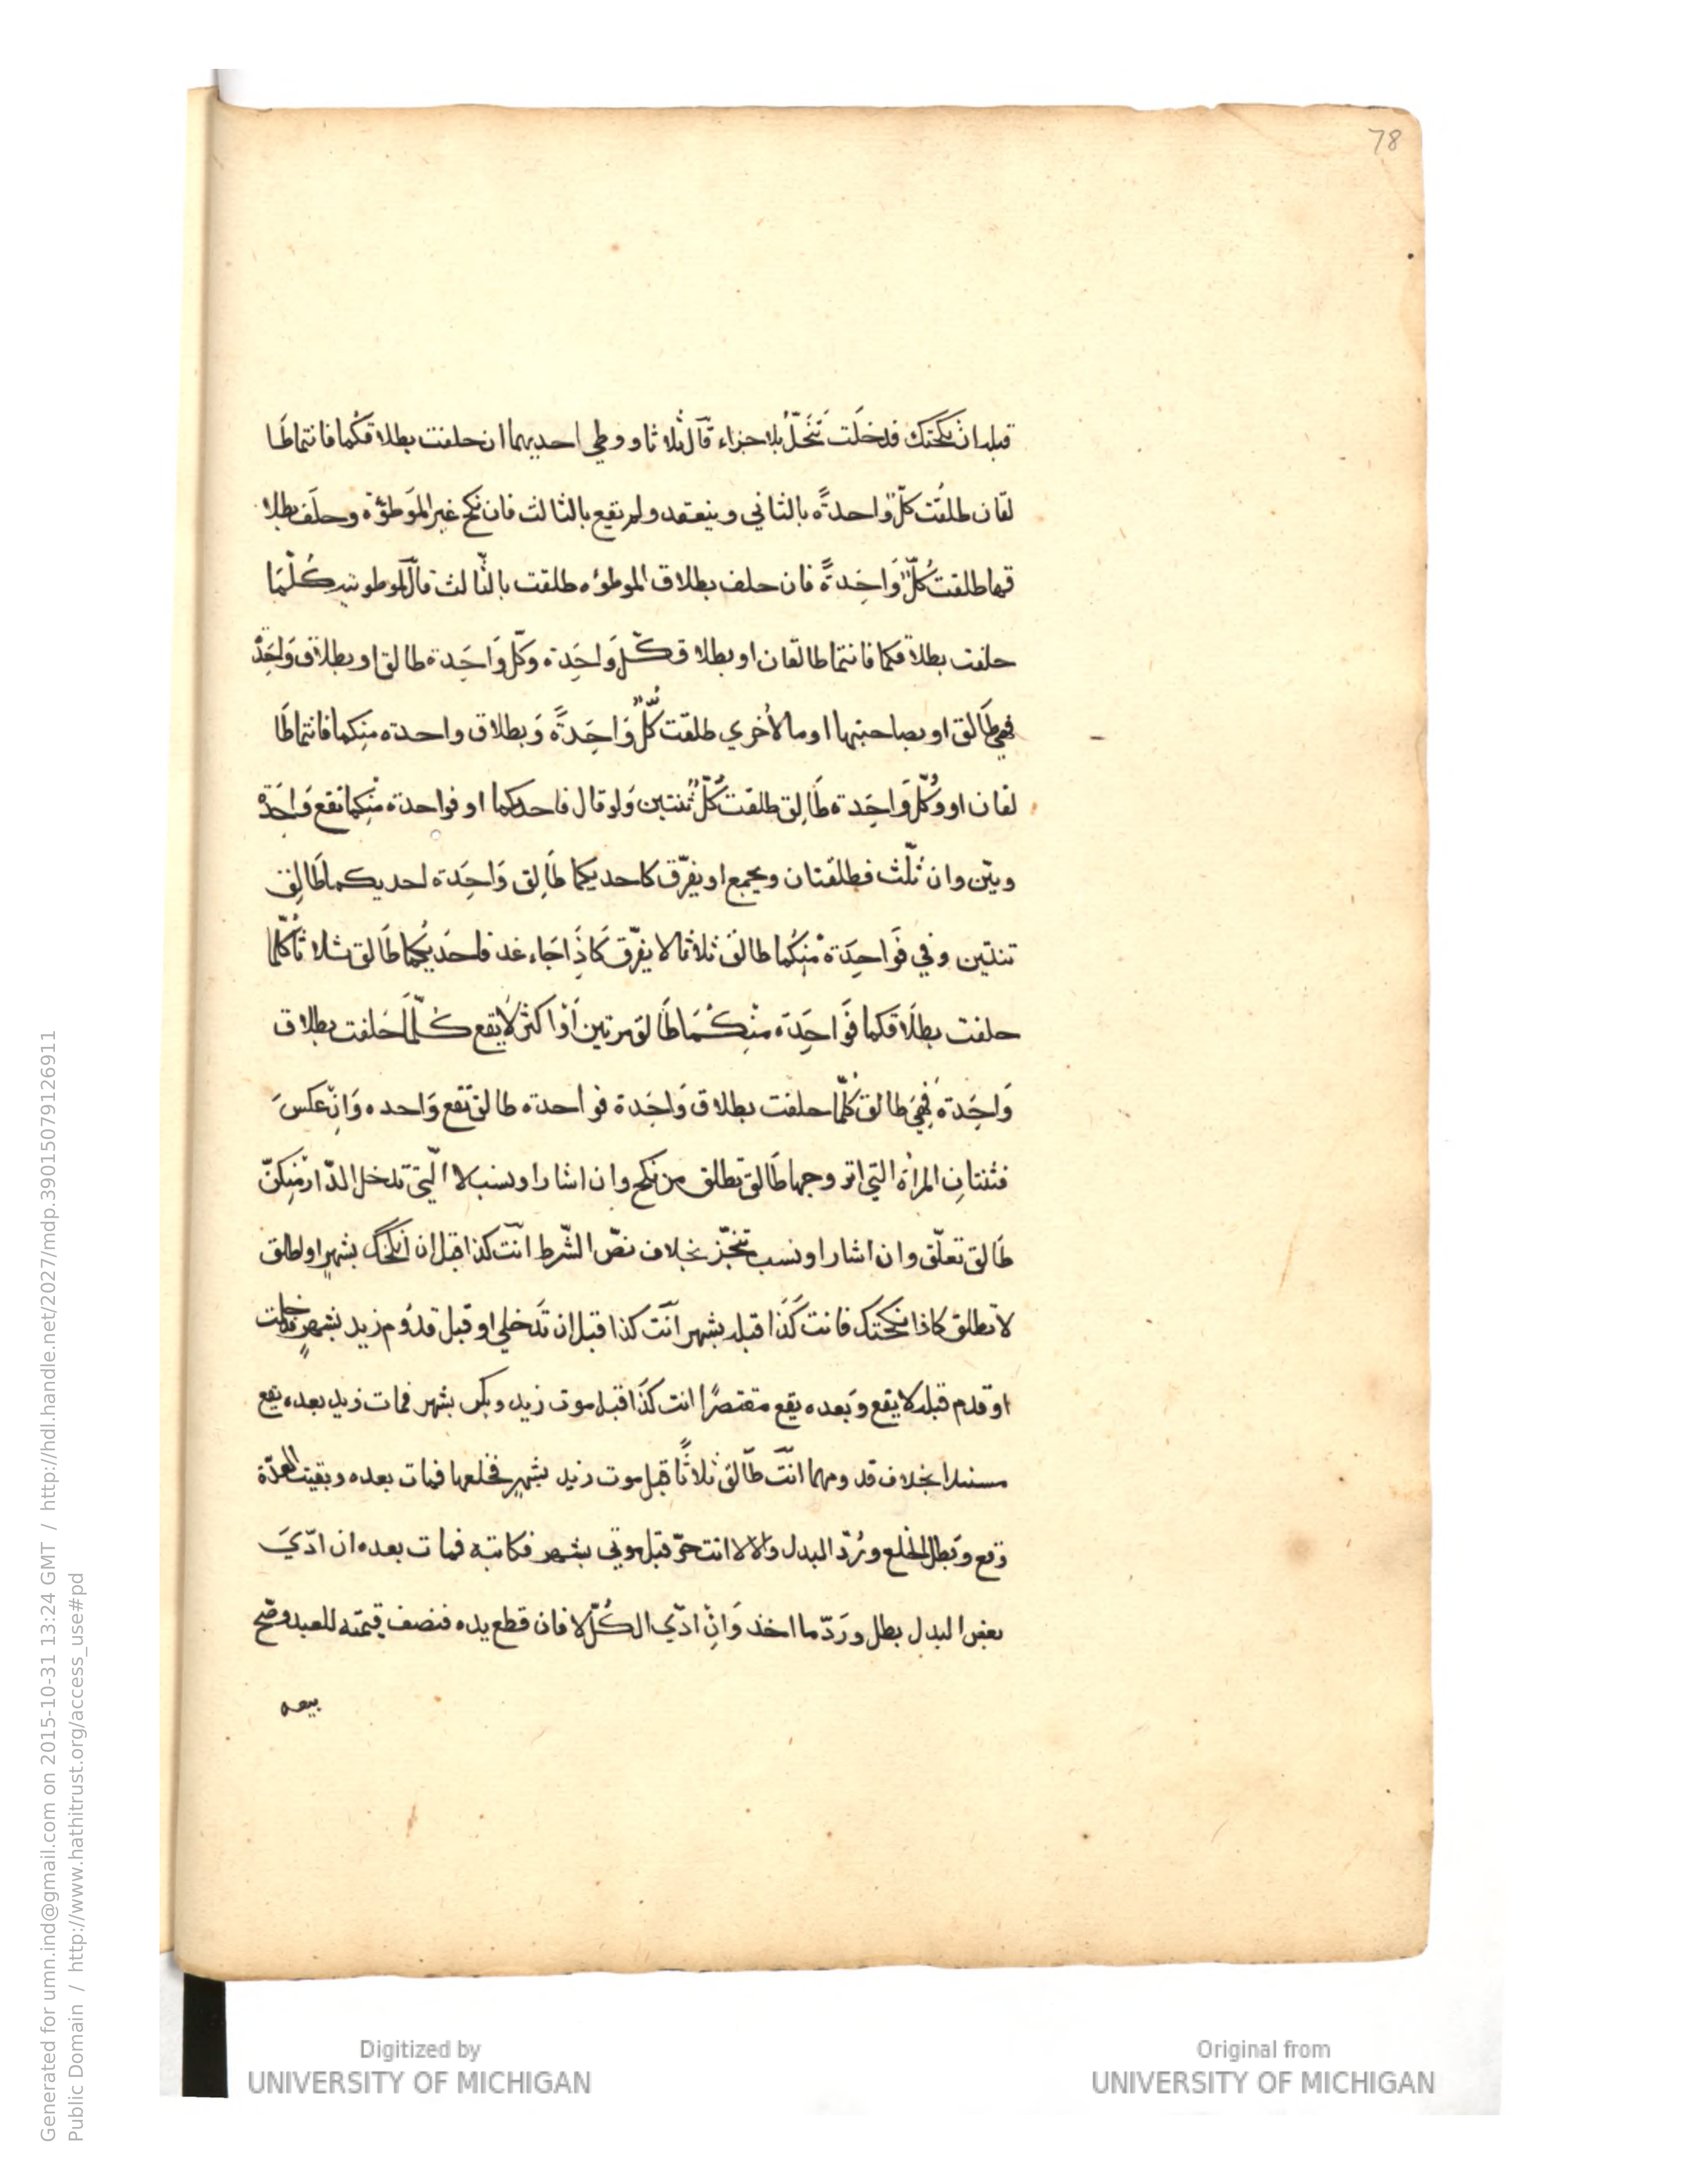 78
قبل ان نكحتك فدخلت تنحل بلا جزاء قال ثلاثا ووطي احديهما ان حلفت بطلاقكما فانتما طا
لقان طلقت كل واحدةً بالثاني وينعقد ولم تقع بالثالث فان نكح غير الموطؤة وحلف بطلا
قها طلقت كلٌّ وَاحِدةً فان حلف بطلاق الموطوٴه طلقت بالثالث قال لموطوتيه كُلّمَا
حلفت بطلاقكما فانتما طالقان او بطلاق كلّ وَاحِدة وكلّ وَاحِدة طالق او بطلاق وَاحِدة
فهي طَالق او بصاحبتها او ما لأخري طلقت كلٌّ وَاحِدةً وَبطلاق واحدة منكما فانتما طَا
لقان او وكُلّ وَاحِدة طَالِق طلقت كلٌّ ثنتين وَلو قال فاحديكما او فواحدة منِكما تقع وَاحِدة
وبيّن وان ثلّث فطلقتان ويجمع او يفرّق كاحديكما طَالِق وَاحِدة احديكما طَالِق
تنتين وفي فَواحِدَة مْنِكُما طالق ثلاثا لا يفرّق كَاذَا جَاء غد فاحديكُما طَالق ثلاثا كلّما
حلفت بطلَاقكما فَواحِدَة منْكُمَا طَالق مرتين أوْ اكثر لَا يقع كُلّمَا حَلفت بطلاق
وَاحِدَة فهِيَ طالق كلّما حلفت بطلاق وَاحِدة فواحدة طالق تقع وَاحده وَانْ عكسَ
فثنتانِ المرأة التي اتزوجها طَالق تطلق من نكح وان اشار او نسب لا الّتي تدخل الدّار منِكنّ
طَالق تعلّق وان اشار او نسب تنجّز بخلاف نصّ الشّرط انت كذا قبل ان انكحك بشهرٍ او لطلق
لا تطلق كاذا نكحتك فانت كَذَا قبله بشهر انت كذا قبل ان تَدخلي او قبل قدُوم زيد بشهرٍ فدخلت
او قدم قبله لا يقع وَبعده يقع مقتصرًا انت كذَا قبل موت زيد وبكر بشهر فمات زيد بعده يقع
مستندا بخلاف قدومهما انتَ طَالق ثلاثًا قبل موت زيد بشهرٍ فخلعها فمات بعده وبقيت العدّة
وقع وَبطل الخلع ورُدّ البدل والا لا انت حرّ قبل موتي بشهر فكاتبه فمات بعده ان ادّيَ
بعض البدل بطل ورَدّ ما اخذ وَانْ ادّي الكُلّ لا فان قطع يده فنصف قيمته للعبد وصَح
بيعه
Digitized by
UNIVERSITY OF MICHIGAN
Original from
UNIVERSITY OF MICHIGAN
Generated for umn.ind@gmail.com on 2015-10-31 13:24 GMT / http://hdl.handle.net/2027/mdp.39015079126911
Public Domain / http://www.hathitrust.org/access_use#pd